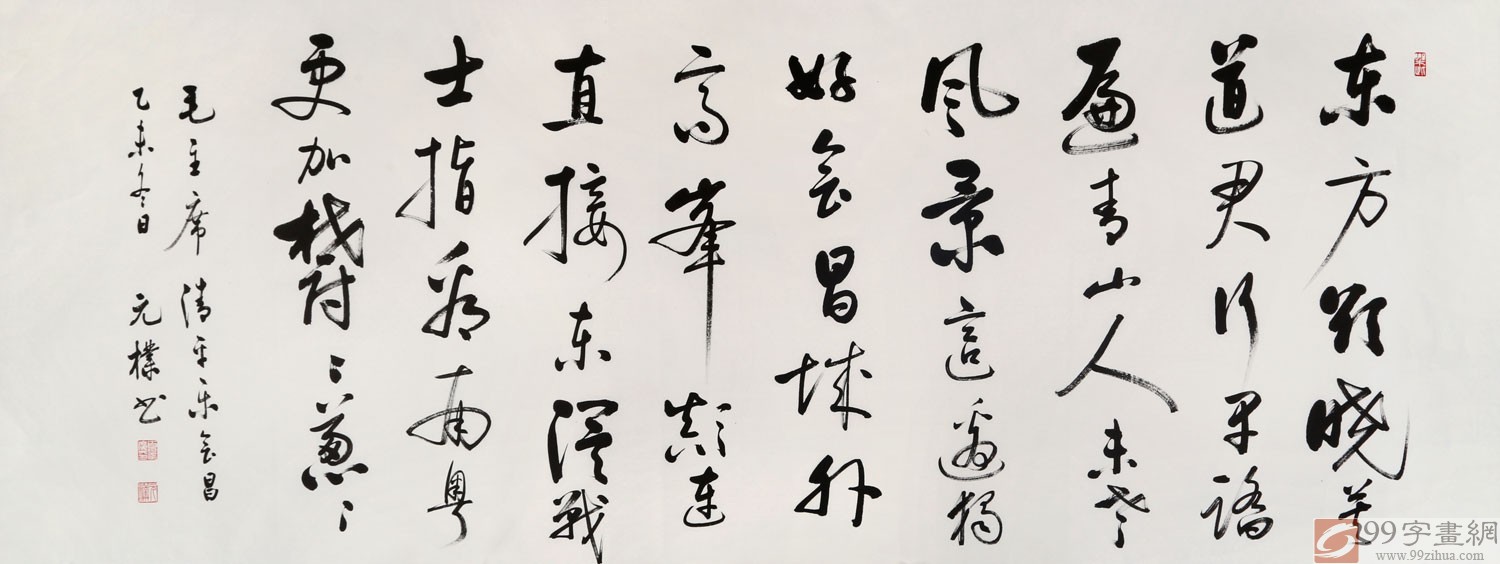 东方欲晓莫
道君行早踏
遍青山人未老
风景這邊独
好会昌城外
高峯颠连
直接东溟战
士指看南粤
更加欝々葱々
毛主席 清平乐会昌
乙未冬日 元樸书
99字畫網
www.99zihua.com